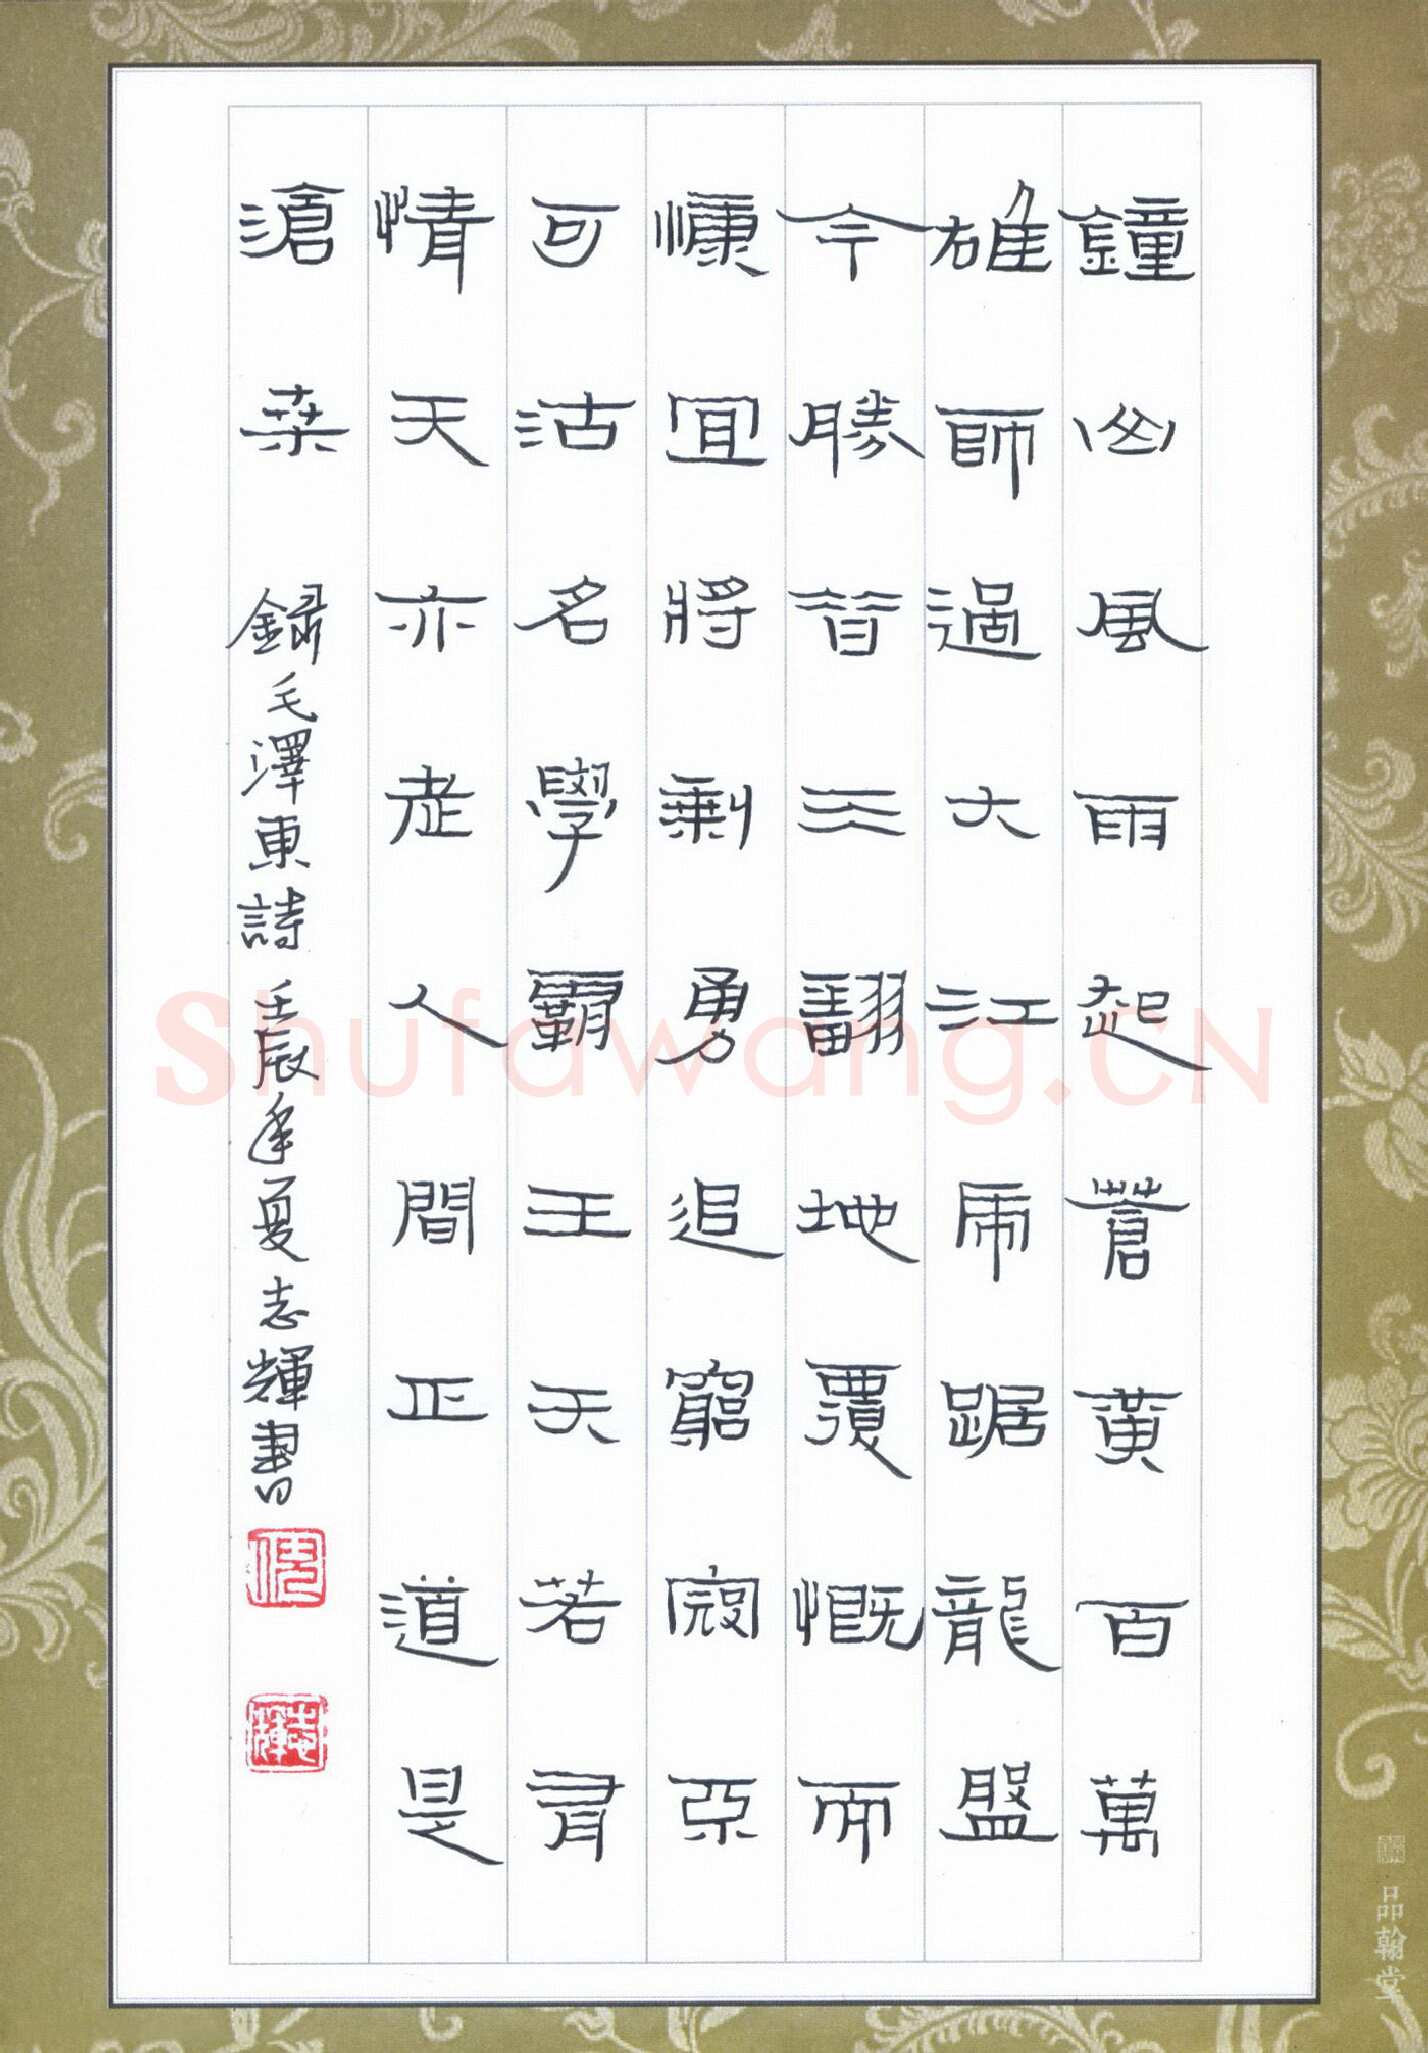 鐘山風雨起蒼黃百萬
雄師過大江虎踞龍盤
今勝昔天翻地覆慨而
慷宜將剩勇追窮寇不
可沽名學霸王天若有
情天亦老人間正道是
滄桑 錄毛澤東詩 壬辰年夏志輝書
倪
志輝
品翰堂
Shufawang.CN